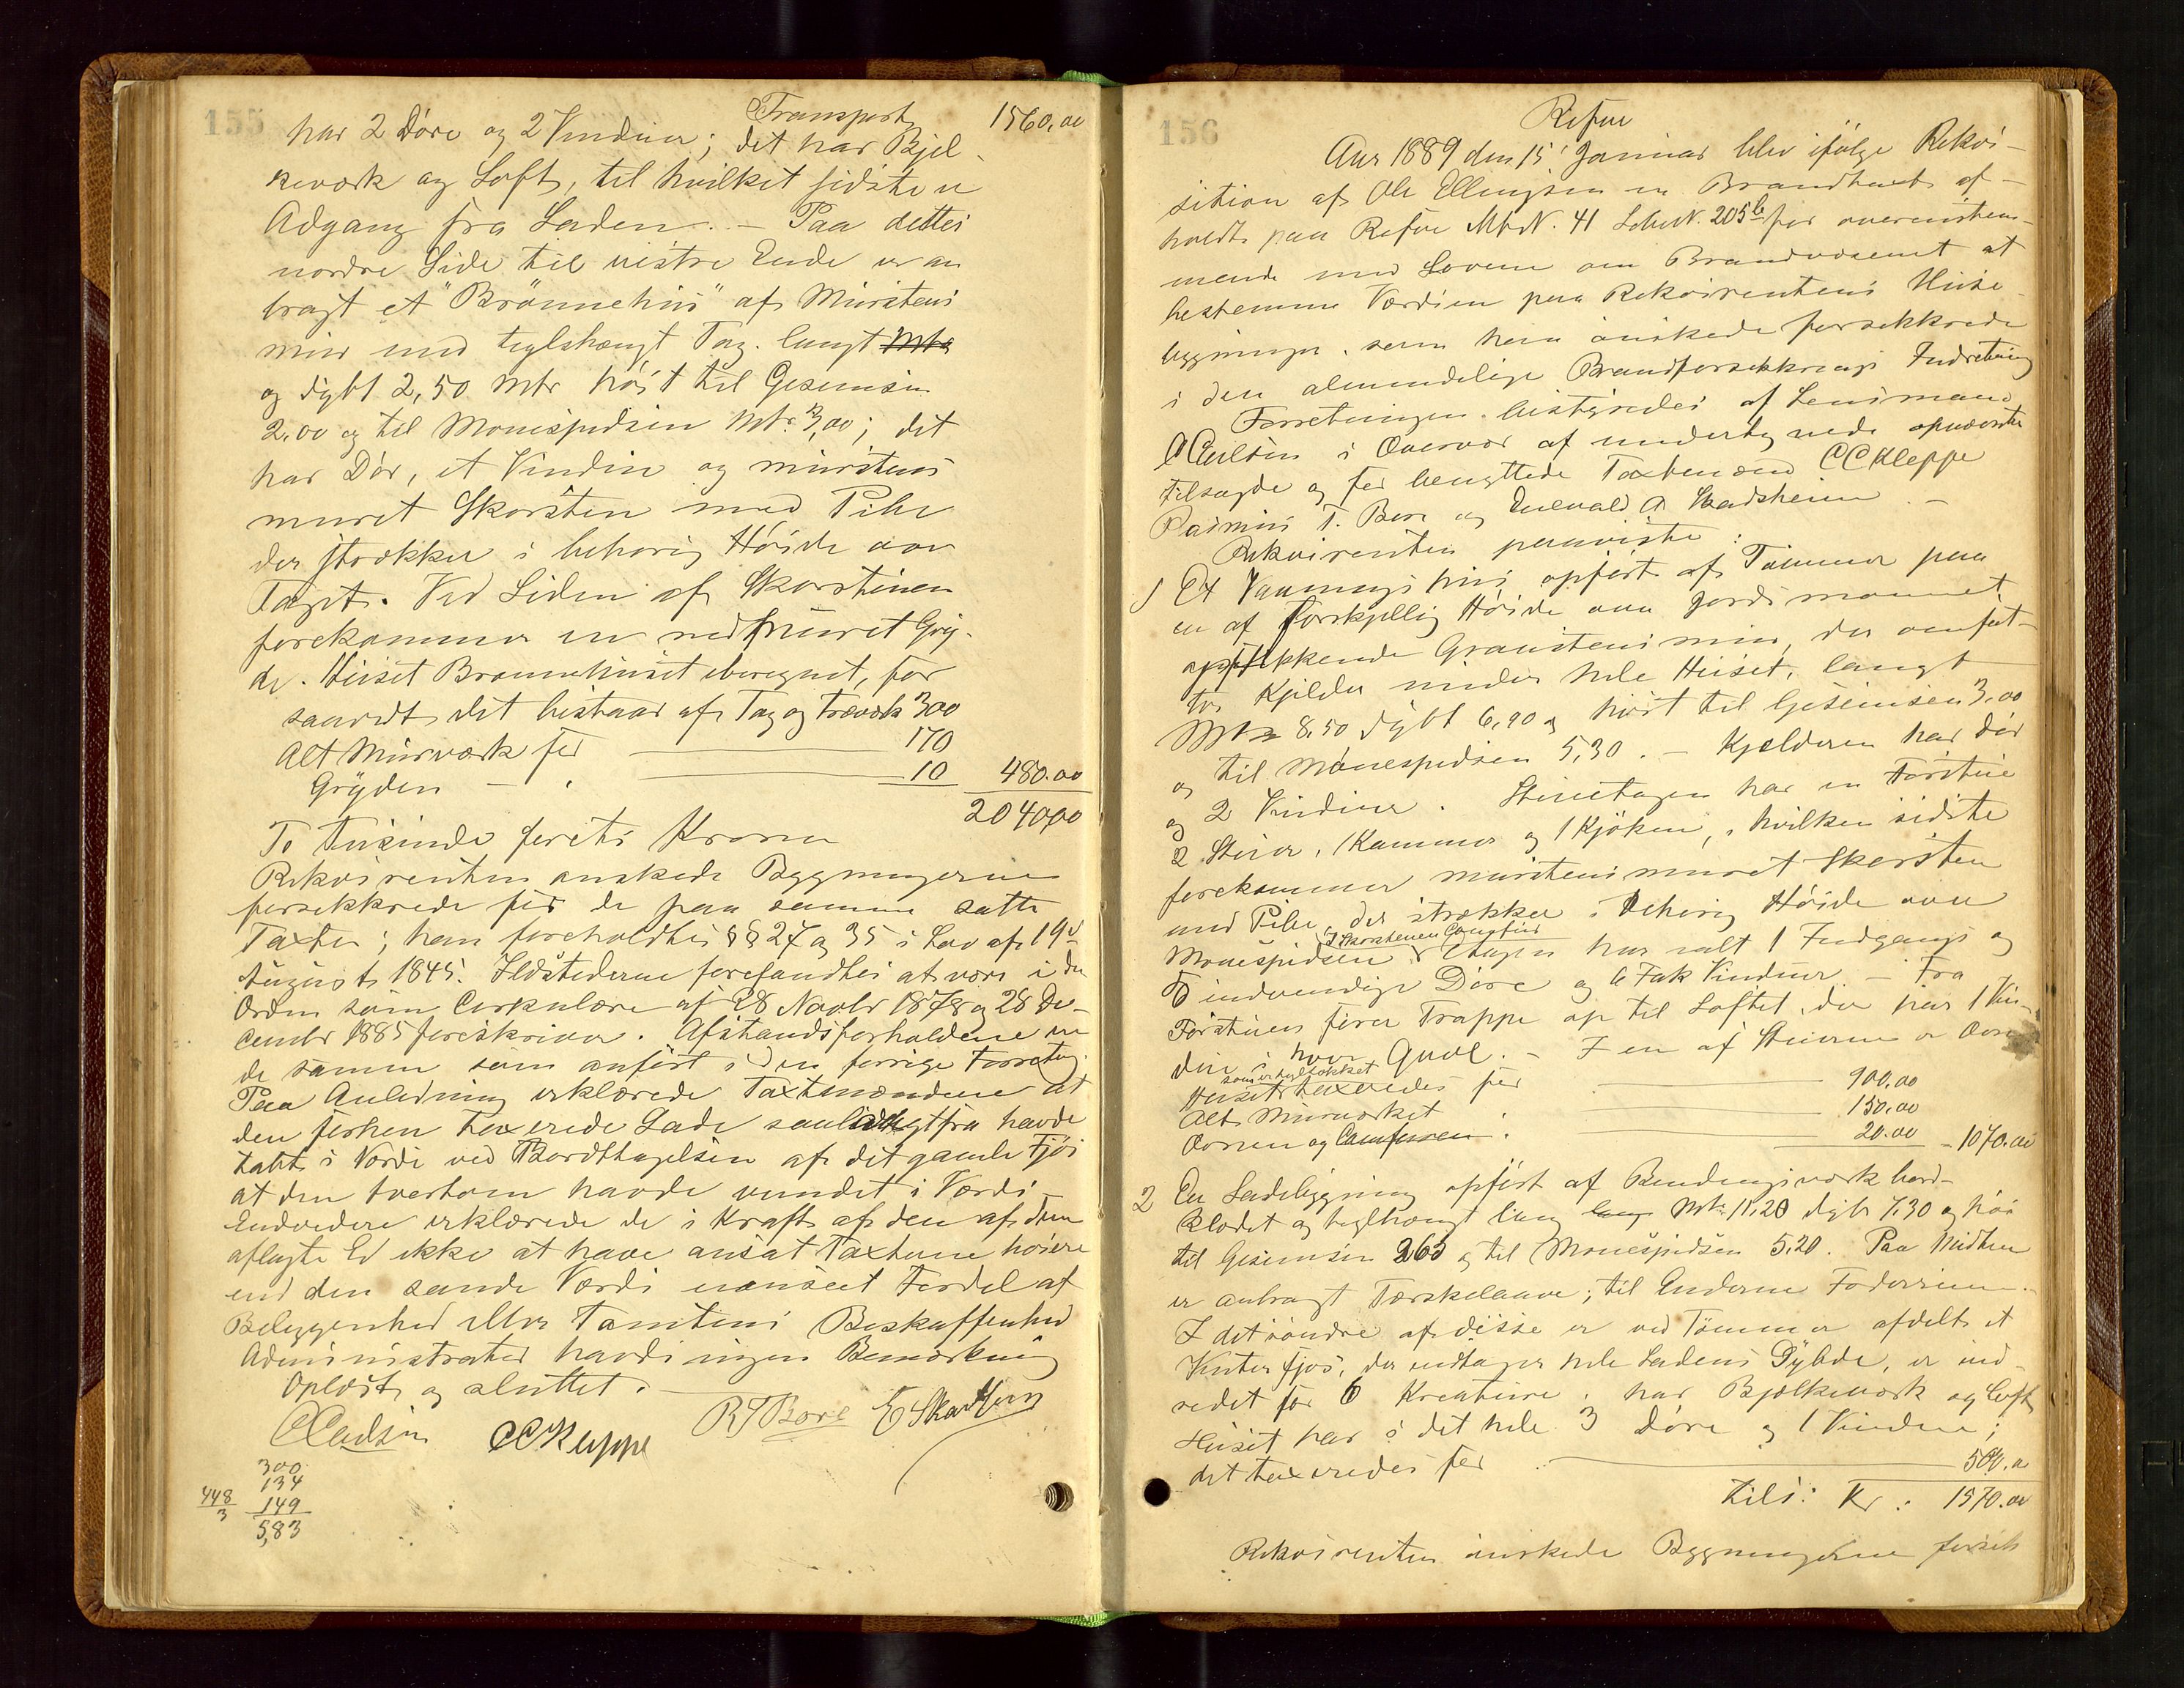 155
Transport 1560,00
har 2 Döre og 2 Vinduer; det har Bjel-
keværk og Loft, til hvilket sidste er
Adgang fra Laden. – Paa dettes
nordre Side til vestre Ende er an
bragt et "Brönnehus" af Murstens
mur med teglhængt Tag. langt Mtr
og dybt 2,50 Mtr höit til Gesimsen
2.00 og til Mönespidsen Mtr. 3,00; det
har Dör, et Vindue og murstens
muret Skorsten med Pibe
der strækker i behörig Höide over
Taget. Ved Siden af Skorstenen
forekommer en nedmuret Gry-
de. Huset Brönnehuset iberegnet, for
saavidt det bestaar af Tag og Træværk 300
Alt Murværk for 170
Gryden – 10 480.00
2040,00
To Tusinde forti Kroner
Rekvirenten önskede Bygningerne
forsekkrede for de paa samme satte
Taxter; han foreholdtes §§ 27 og 35 i Lov af 19d
August 1845. Ildstederne forefandtes at være i den
Orden som Cirkulære af 28 Novbr 1878 og 28 De-
cembr 1885 foreskriver. Afstandsforholdene er
de samme som anfört i den forrige Forretng.
Paa Anledning erklærede Taxtmændene at
den forhen taxerede Lade saalidtgtfra havde
tabt i Værdi ved Bordttagelsen af det gamle Fjös
at den tvertom havde vundet i Værdi –
Endvidere erklærede de i Kraft af den af dem
aflagte Ed ikke at have ansat Taxterne höiere
end den sande Værdi uanseet Fordel af
Beliggenhed eller Tomtens Beskaffenhed
Administrator havde ingen Bemærkning
Oplæst og sluttet.
CCKleppe RTBore E Skadsheim
300
134
448/3 149
583
156
Refve
Aar 1889 den 15 Januar blev ifölge Rekvi-
sition af Ole Ellingsen en Brandtaxt af-
holdt paa Refve Mtr.N. 41 LöbeN. 205b for overenstem-
mende med Lovene om Brandvæsenet at
bestemme Værdien paa Rekvirentens Huse-
bygninger. som han önskede forsekkrede
i den almindelige Brandforsekkrings Indretning
Forretningen bestyredes af Lensmand
i Overvær af undertegnede opnævnte
tilsagde og för benyttede Taxtmænd CCKleppe
Rasmus T. Bore og Enevald A Skadsheim –
Rekvirenten paaviste:
1 Et Vaaningshus opfört af Tömmer paa
en af forskjellig Höide over Jordsmonnet
opstikkende Granstens mur, der omfat-
ter Kjelder under hele Huset, langt
Mtr 8,50 dybt 6,90 og höit til Gesimsen 3,00
og til Mönespidsen 5,30. – Kjelderen har Dör
og 2 Vinduer. Stuetagen har en Forstue
2 Stuer, 1 Kammer og 1 Kjöken, i hvilken sidste
forekommer murstensmuret Skorsten
med Pibe, der strækker i behörig Höide over
Mönespidsen. I Skorstenen Comfur Etagen har ialt 1 Indgangs og
5 indvendige Döre og 6 Fak Vinduer – Fra
Forstuen förer Trappe op til Loftet, der har 1 Vin-
due i hver Gavl. – I en af Stuerne er Ovn
Huset som er tegltækket taxeredes for 900,00
Alt Murværket 150,00
Ovnen og Comfuren. 20.00 – 1070.00
2 En Ladebygning opfört af Bindingsværk bord-
klædet og teglhængt lang lang Mtr. 11,20 dyb 7,30 og höi
til Gesimsen 2,65 og til Mönespidsen 5,20. Paa Midten
er anbragt Tærskelaave; til Enderne Foderrum.
I det söndre af disse er ved Tömmer afdelt et
Vinterfjös, der indtager hele Ladens Dybde, er ind-
redet for 6 Kreature, har Bjelkeværk og Loft
Huset har i det hele 3 Döre og 1 Vindue;
det taxeredes for 500.00
tils: Kr: 1570.00
Rekvirenten önskede Bygningerne forsek